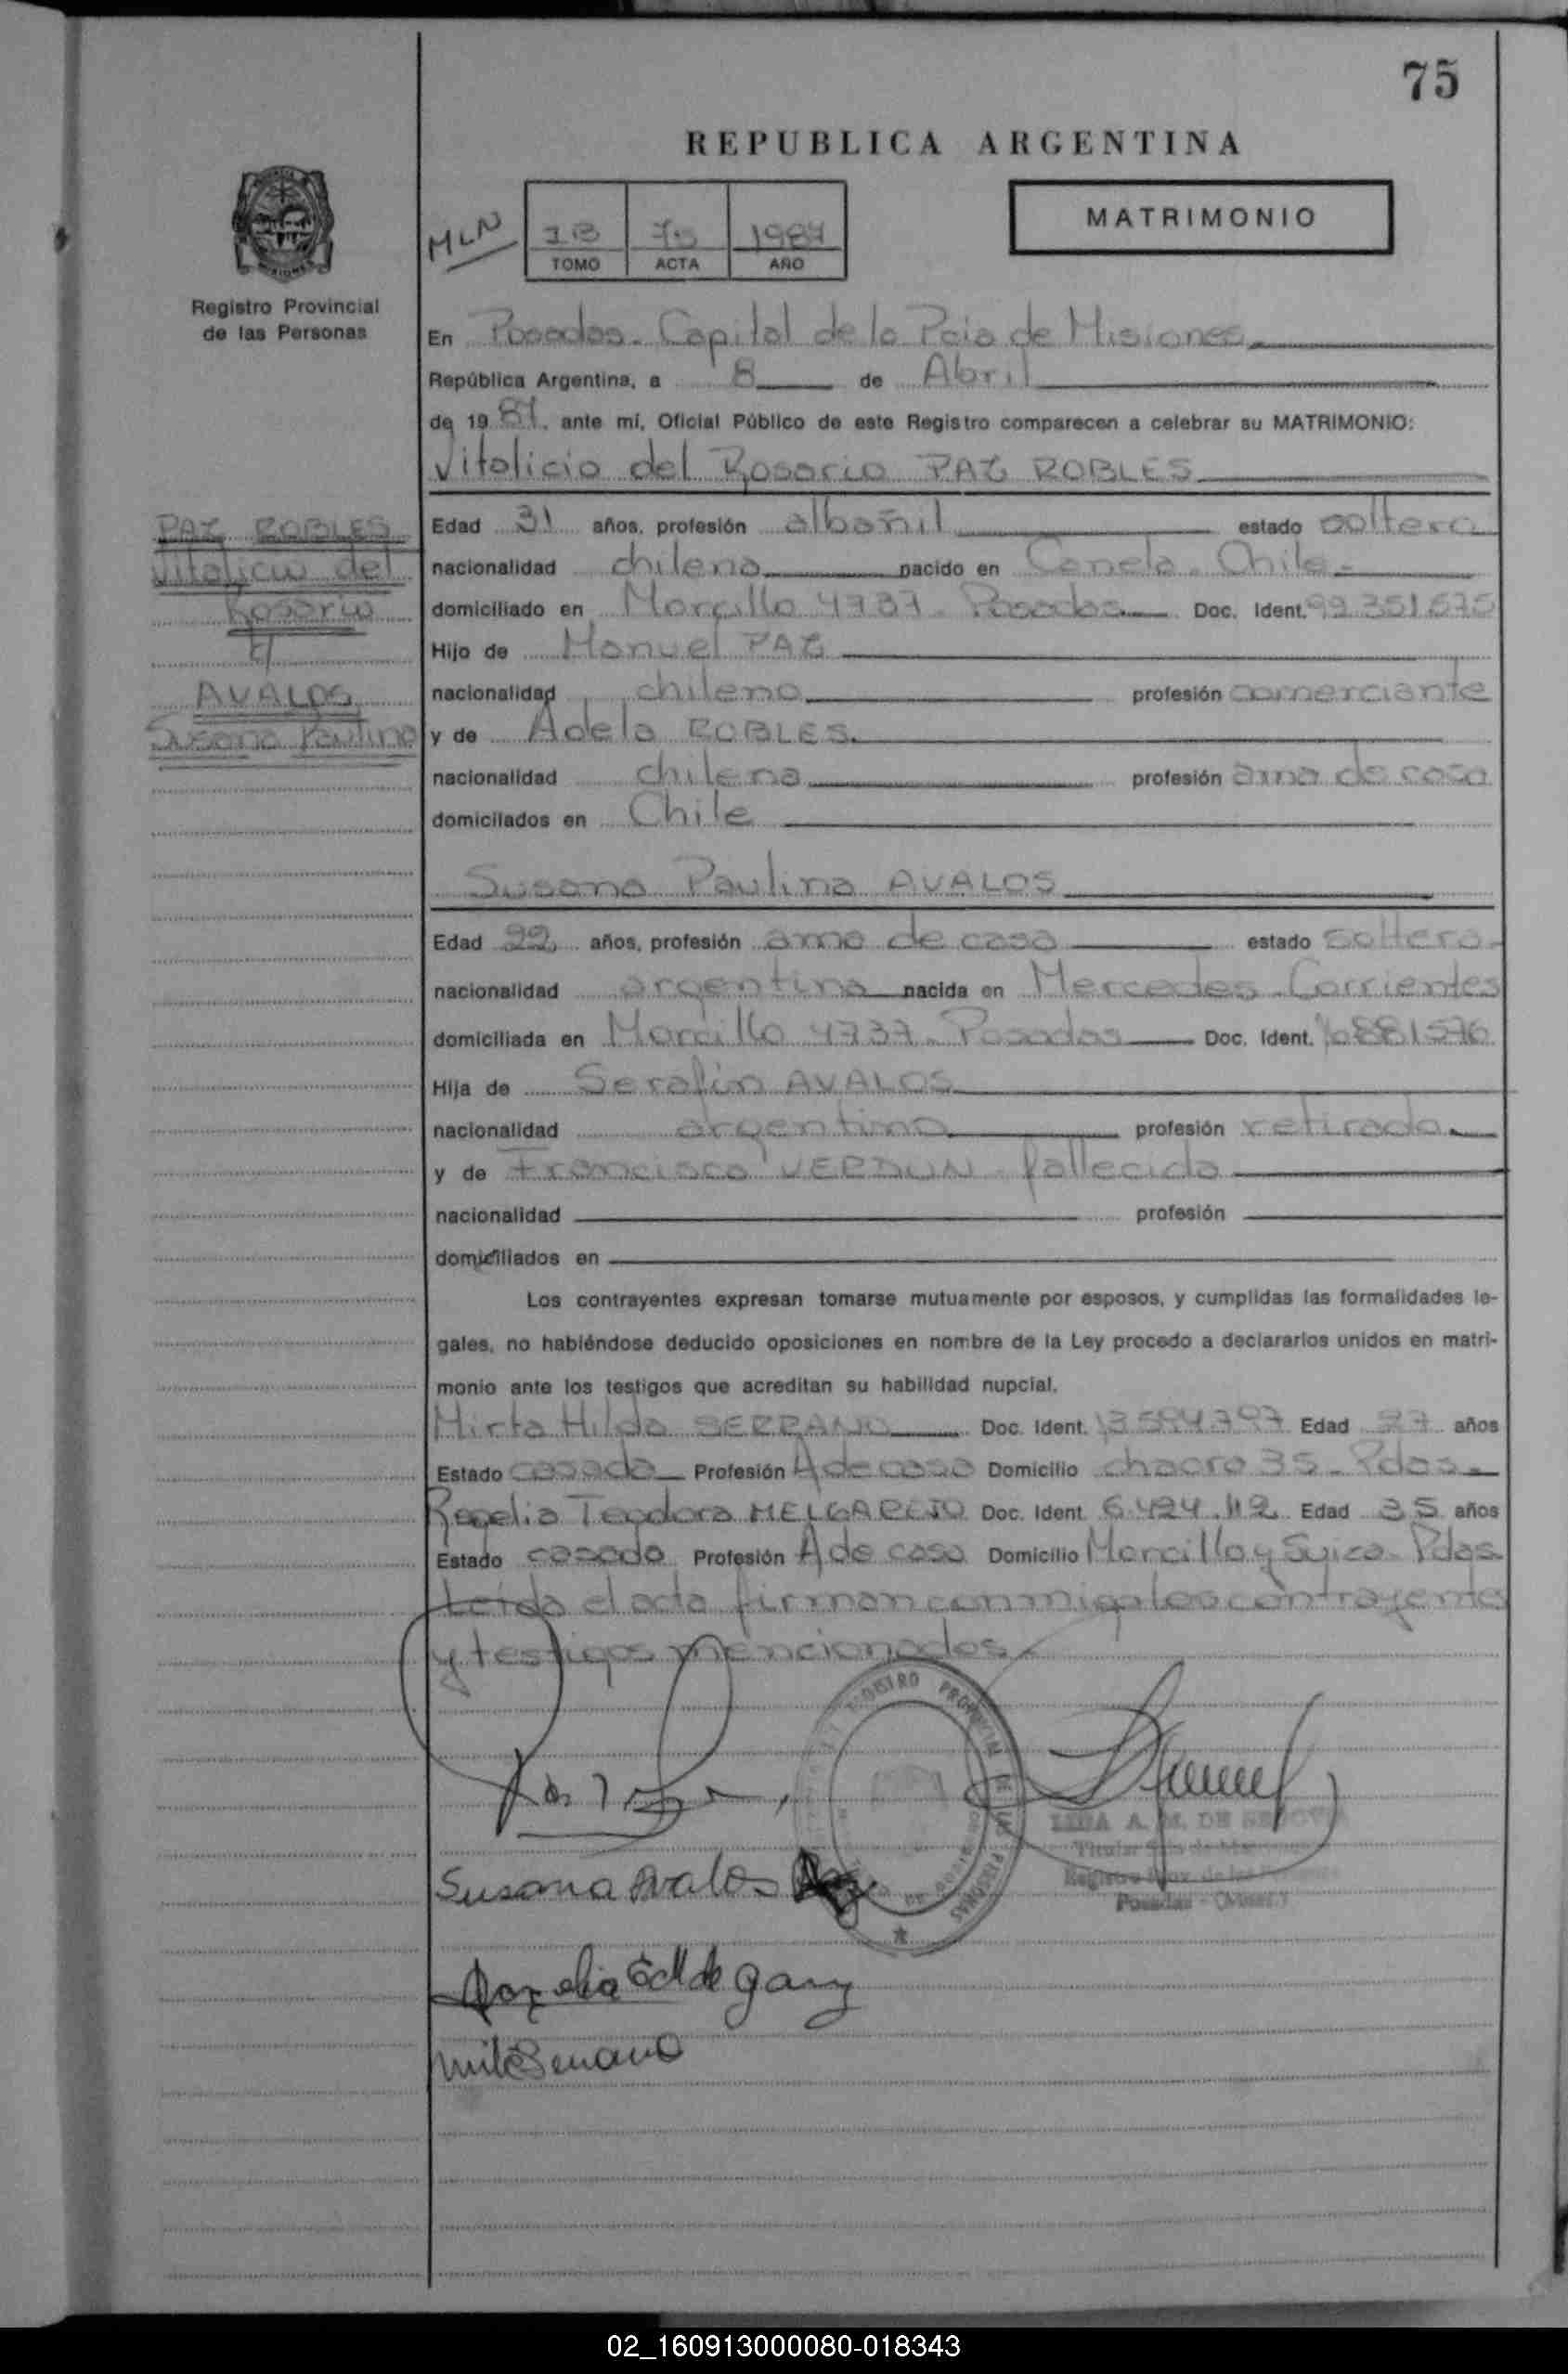 75
REPUBLICA ARGENTINA
MLN
1B 75 1987
TOMO ACTA AÑO
MATRIMONIO
Registro Provincial
de las Personas
En Posadas. Capital de la Pcia de Misiones
República Argentina, a 8 de Abril
de 19 87. ante mí, Oficial Público de este Registro comparecen a celebrar su MATRIMONIO:
Vitalicio del Rosario PAZ ROBLES
PAZ ROBLES
Vitalicio del
Rosario
c/
AVALOS
Susana Paulina
Edad 31 años, profesión albañil estado soltero
nacionalidad chileno nacido en Canela - Chile -
domiciliado en Morcillo 4737 - Posadas Doc. Ident. 92.351.575
Hijo de Manuel PAZ
nacionalidad chileno profesión comerciante
y de Adela ROBLES.
nacionalidad chilena profesión ama de casa
domiciliados en Chile
Susana Paulina AVALOS
Edad 22 años, profesión ama de casa estado soltera -
nacionalidad argentina nacida en Mercedes - Corrientes
domiciliada en Morcillo 4737 - Posadas Doc. Ident.
Hija de Serafín AVALOS
nacionalidad argentino profesión retirado
y de Francisca VERDUN - fallecida
nacionalidad profesión
domiciliados en
Los contrayentes expresan tomarse mutuamente por esposos, y cumplidas las formalidades le-
gales, no habiéndose deducido oposiciones en nombre de la Ley procedo a declararlos unidos en matri-
monio ante los testigos que acreditan su habilidad nupcial.
Mirta Hilda SERRANO Doc. Ident. 13594797 Edad 27 años
Estado casada Profesión A de casa Domicilio chacra 35 - Pdas -
Rogelia Teodora MELGAREJO Doc. Ident. 6.424.112 Edad 35 años
Estado casada Profesión A de casa Domicilio Morcillo y Suiza - Pdas
Leída el acta firman conmigo los contrayentes
y testigos mencionados -
REGISTRO PROVINCIAL DE LAS PERSONAS
LIDIA A. M. DE SEGOVIA
Registro Prov. de las Personas
Posadas - (Mnes.)
Susana Avalos
Rogelia
Serrano
02_160913000080-018343